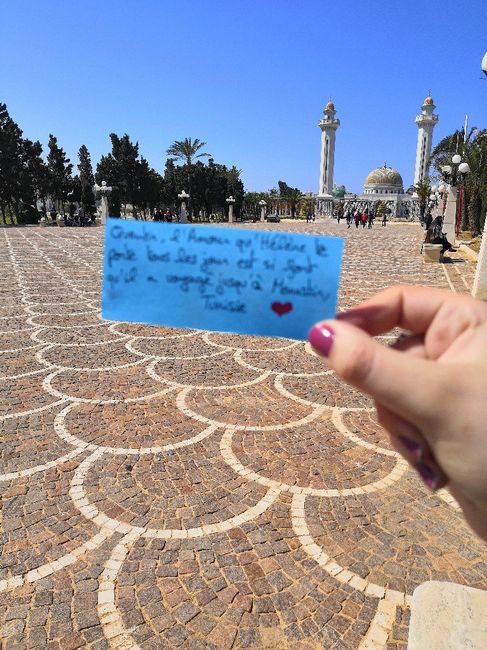 Quentin, l'Amour qu'Hélène te
porte tous les jours est si fort
qu'il a voyagé jusqu'à Monastir,
Tunisie ❤